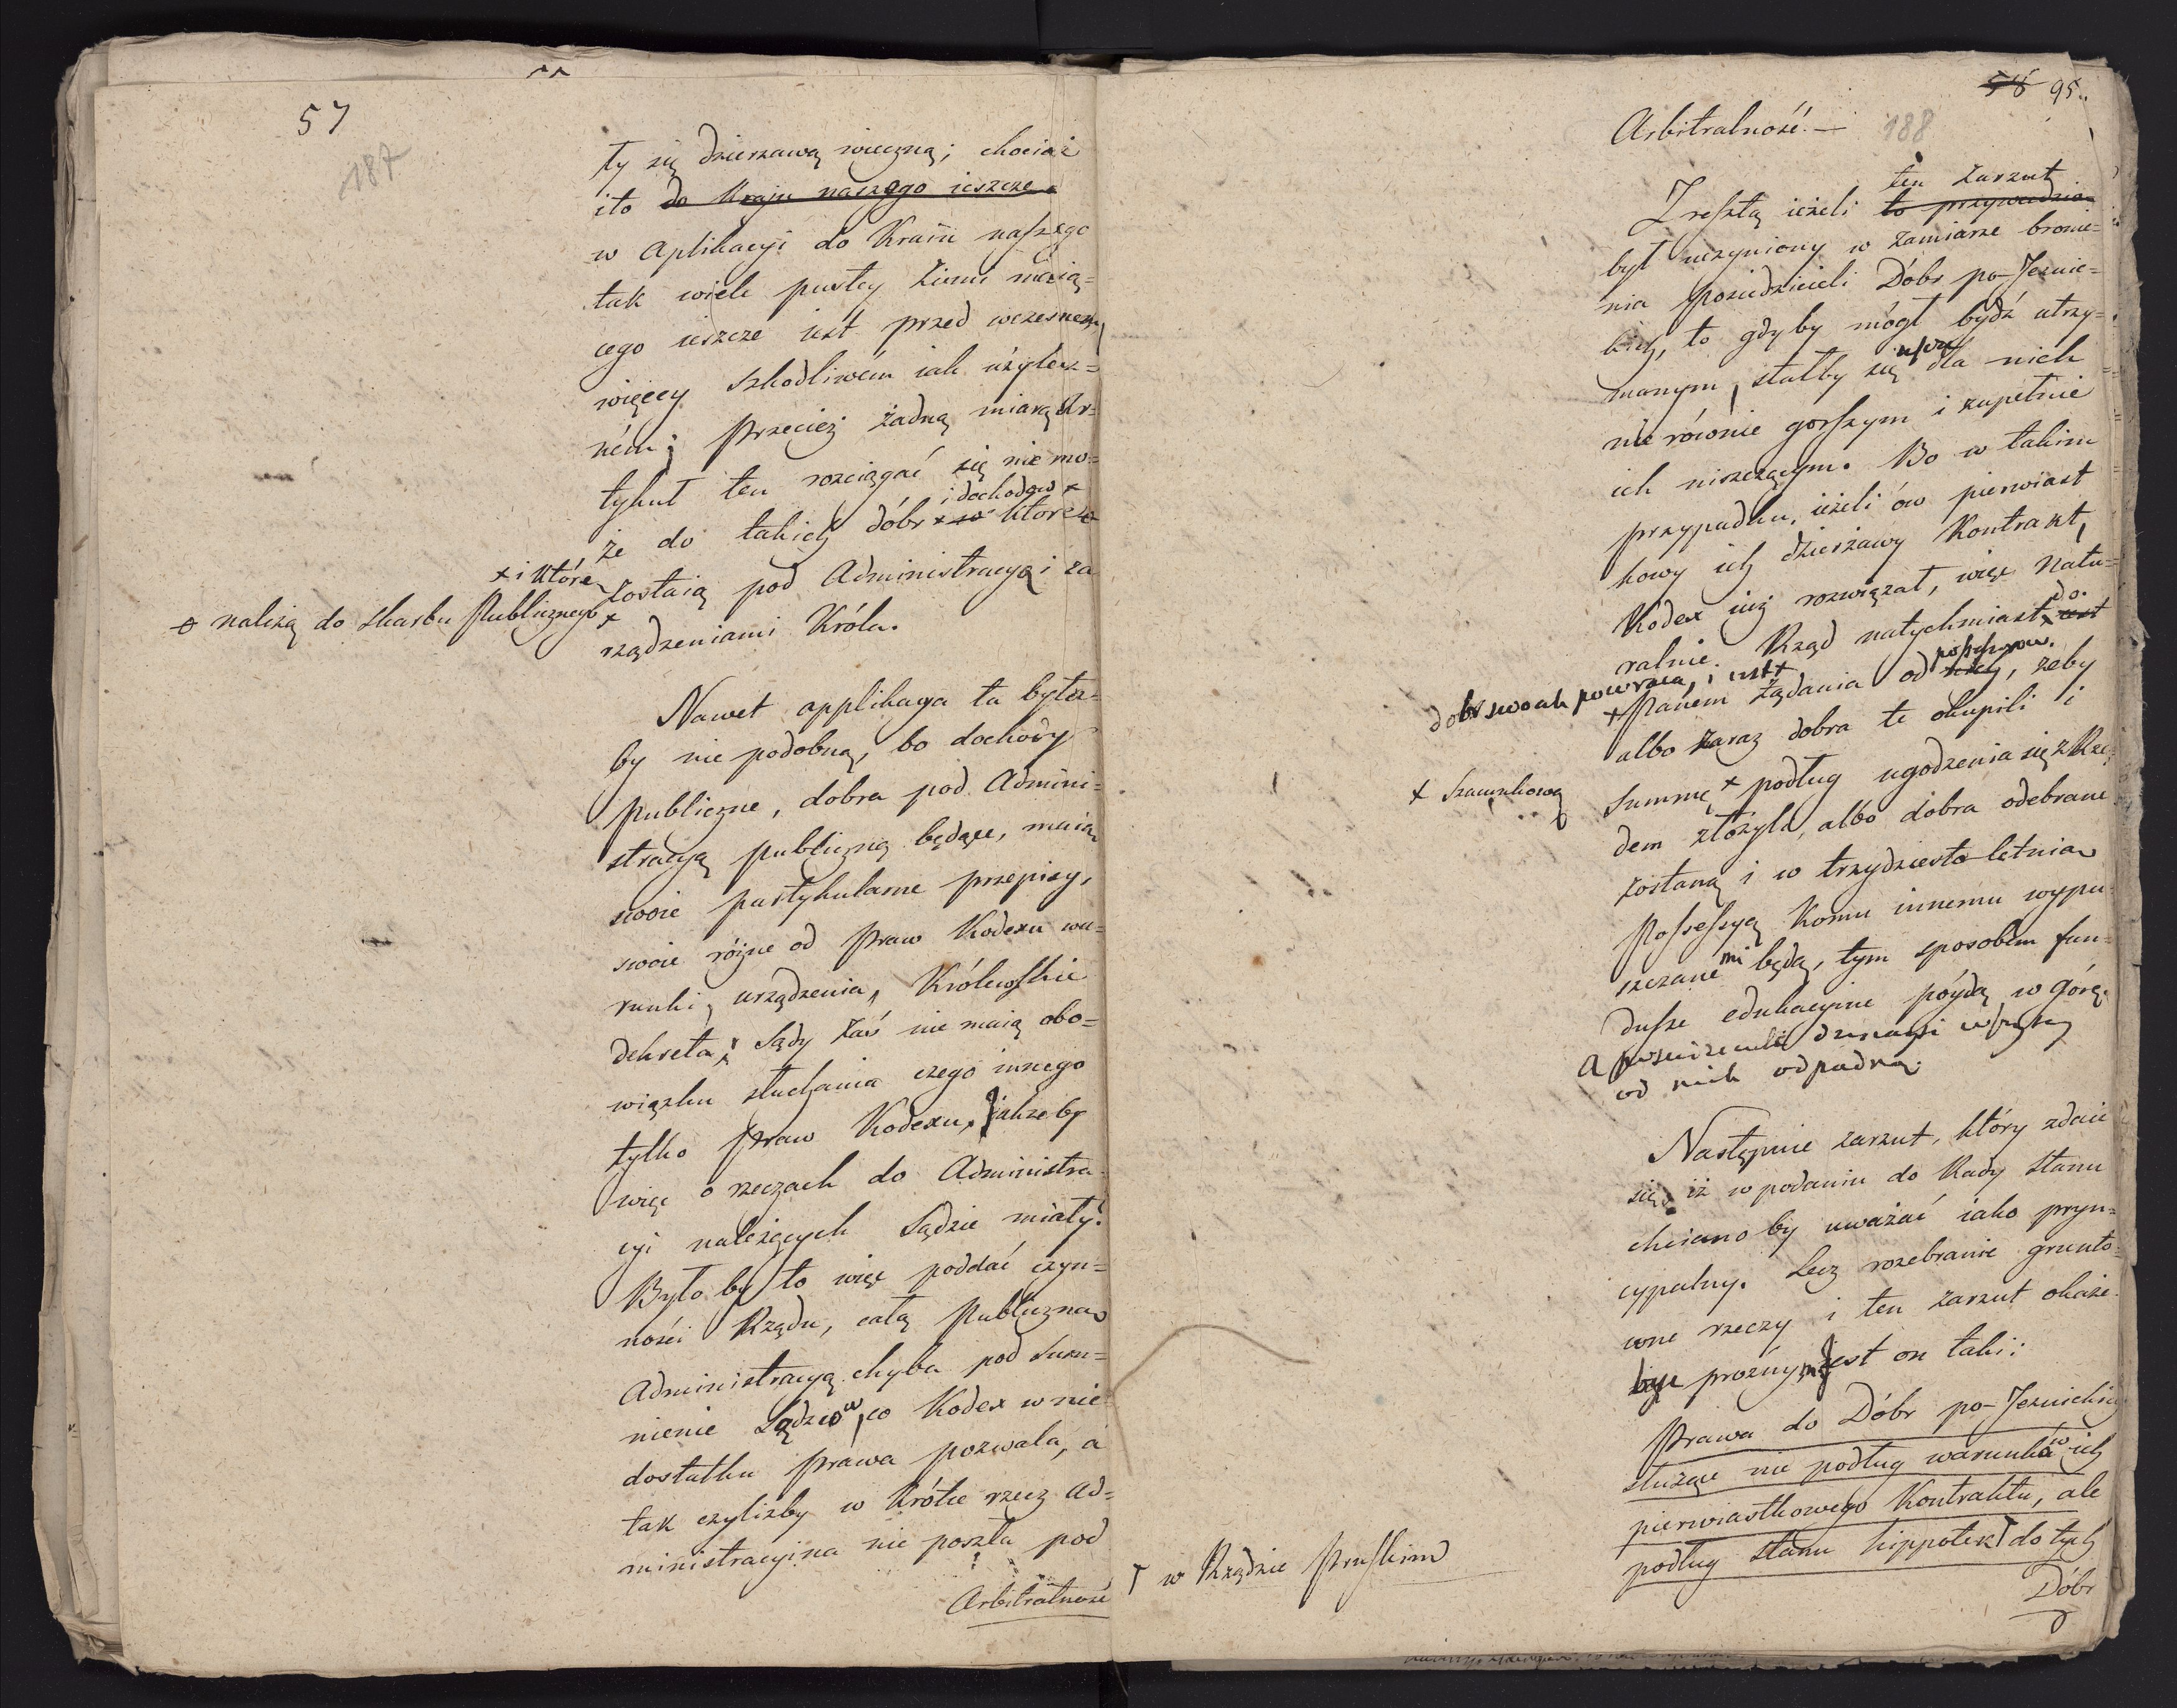 57
187
ty się dzierzawą wieczną; chociaż
ito do kraju naszego ieszcze
w aplikacyi do Kraiu naszego
tak wiele pustey ziemi maią=
cego ieszcze iest przed wczesnem
więcey szkodliwém iak użytecz=
ném; przecież żadną miarą Ar=
tykuł ten rozciągać się nie mo=
i dochodow x
że do takich dóbr x w które
x i które
zostaią pod Administracyą i za
należą do skarbu Publicznego x
rządzeniami Króla.
Nawet applikacya ta byłá=
by nie podobną, bo dochody
publiczne, dobra pod Admini=
stracyą publiczną będące, maią
swoie partykularne przepisy,
swoie różne od praw Kodexu wa=
runki, urządzenia, Królewskie
dekreta; Sądy zaś nie maią obo=
wiązku słuchania czego innego
tylko praw Kodexu, jakżeby
więc o rzeczach do Administra=
cyi należących Sądzić miały?
Było by to więc poddać czyn=
ności Rządu, całą Publiczną
Administracyą chyba pod sum=
nienie Sędziów, co Kodex w nie
dostatku prawa pozwala, a
tak czyliżby w krótce rzecz ad=
ministracyina nie poszła pod
Arbitralność
58 95.
188
Arbitralność. —
ten zarzut
Zresztą ieżeli to przywiedzio
był uczyniony w zamiarze bronie=
nia posiedzicieli Dóbr po-Jezuic=
kich, to gdyby mógł bydź utrzy=
manym, stałby się dla nich
nie równie gorszym i zupełnie
ich niszczącym. Bo w takim
przypadku, ieżeli ów pierwiast
kowy ich dzierżawy Kontrakt,
Kodex iuż rozwiązał, więc natu=
do
ralnie Rząd natychmiast x iest
dobr swoich powraca, i iest x
x Panem żądania od nich, żeby
albo zaraz dobra te okupili i
x szacunkową
summę x podług ugodzenia się z Rzą=
dem złożyli, albo dobra odebrane
zostaną i w trzydziesto-letnią
Possessyą komu innemu wypu=
szczanemi będą, tym sposobem fun=
dusze edukacyine póydą w górę.
a posiedziciele dzisieysi
od nich odpadną.
Następnie zarzut, który zdaie
się iż w podaniu do Rady Stanu
chciano by uważać iako pryn=
cypalny. Lecz rozebranie grunto=
wne rzeczy i ten zarzut okaże
być prożnym jest on taki:
Prawa do Dóbr po-Jezuickich
służące nie podług warunków ich
pierwiastkowego Kontraktu, ale
podług stanu hippotek † do tych
† w Rządzie Pruskim
Dóbr